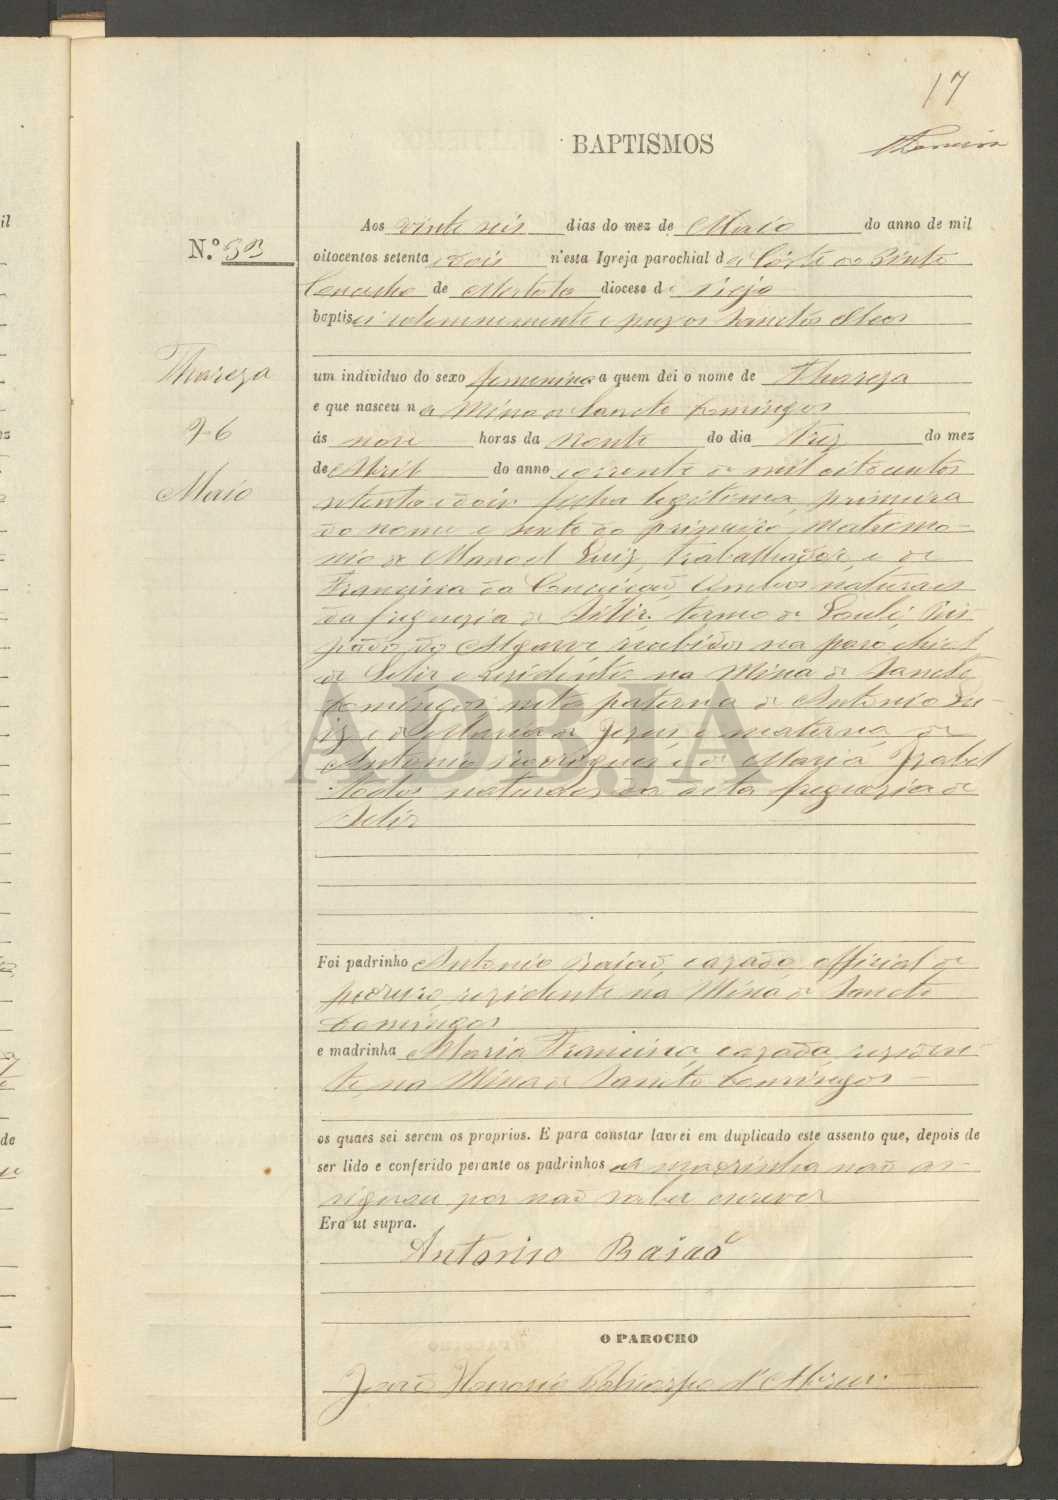 17
BAPTISMOS
Aos vinte seis dias do mez de Maio do anno de mil
N.º 33
oitocentos setenta e dois n'esta Igreja parochial da Côrte do Pinto
Concelho de Mertola diocese de Beja
baptisei solemnemente e puz os Sanctos Oleos
Thareza
um individuo do sexo femenino a quem dei o nome de Thareza
e que nasceu na Mina de Sancto Domingos
26
ás nove horas da noute do dia trez do mez
Maio
de Abril do anno corrente de mil oitocentos
setenta e dois filha legitima, primeira
do nome e do primeiro Matrimo-
nio de Manoel Luiz, trabalhador, e de
Francisca da Conceição, ambos naturaes
da freguezia de Selir, termo de Loulé, Bis-
pado do Algarve recebidos na parochial
de Selir e residentes na Mina de Sancto
Domingos, neta paterna de Antonio Lu-
iz e de Maria de Jezus e materna de
Antonio Rodrigues e de Maria Izabel
todos naturaes da dita freguezia de
Selir
ADBJA
Foi padrinho Antonio Baião, cazado, official de
pedreiro, rezidente na Mina de Sancto
Domingos
e madrinha Maria Francisca, cazada, reziden-
te, na Mina de Sancto Domingos
os quaes sei serem os proprios. E para constar lavrei em duplicado este assento que, depois de
ser lido e conferido perante os padrinhos a madrinha não as-
signou por não saber escrever
Era ut supra.
Antonio Baiaõ
O PAROCHO
João Honorio Policarpo d'Abreu